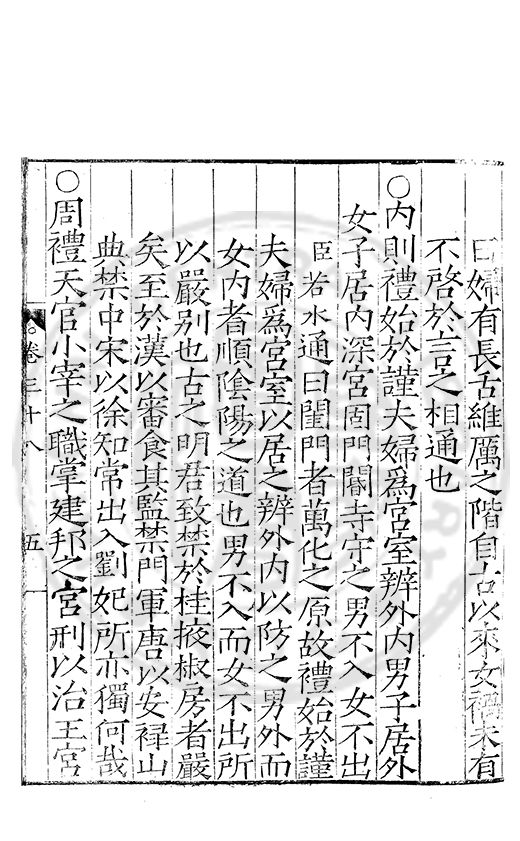 曰婦有長舌維厲之階自古以來女禍未有
不啓於言之相通也
○内則禮始於謹夫婦爲宮室辨外内男子居外
女子居内深宮固門閽寺守之男不入女不出
臣若水通曰閨門者萬化之原故禮始於謹
夫婦爲宮室以居之辨外内以防之男外而
女内者順陰陽之道也男不入而女不出所
以嚴别也古之明君致禁於桂掖椒房者嚴
矣至於漢以審食其監禁門軍唐以安祿山
典禁中宋以徐知常出入劉妃所亦獨何哉
○周禮天官小宰之職掌建邦之宮刑以治王宮
卷三十八 五